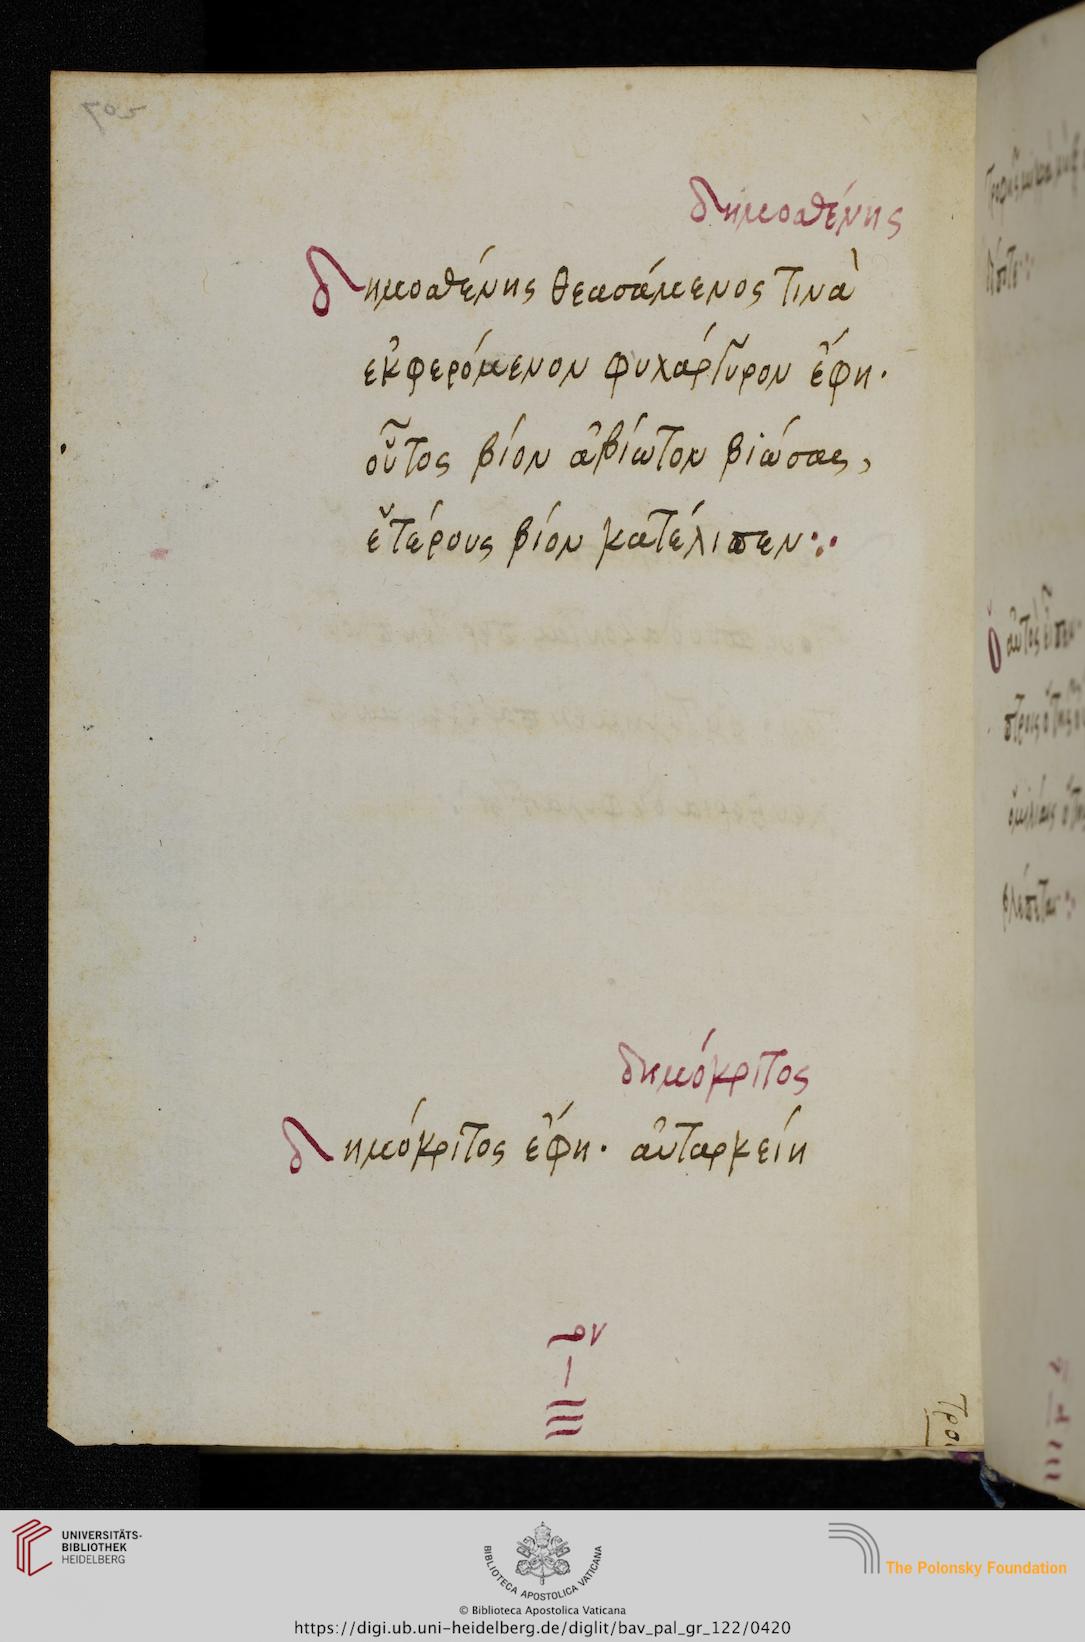 δημοσθένης
δημοσθένης θεασάμενος τινὰ
ἐκφερόμενον φυχάργυρον ἔφη·
οὗτος βίον ἀβίωτον βιώσας,
ἑτέροις βίον κατέλιπεν
δημόκριτος
δημόκριτος ἔφη· αὐταρκείη
UNIVERSITÄTS-
BIBLIOTHEK
HEIDELBERG
BIBLIOTECA APOSTOLICA VATICANA
© Biblioteca Apostolica Vaticana
The Polonsky Foundation
https://digi.ub.uni-heidelberg.de/diglit/bav_pal_gr_122/0420